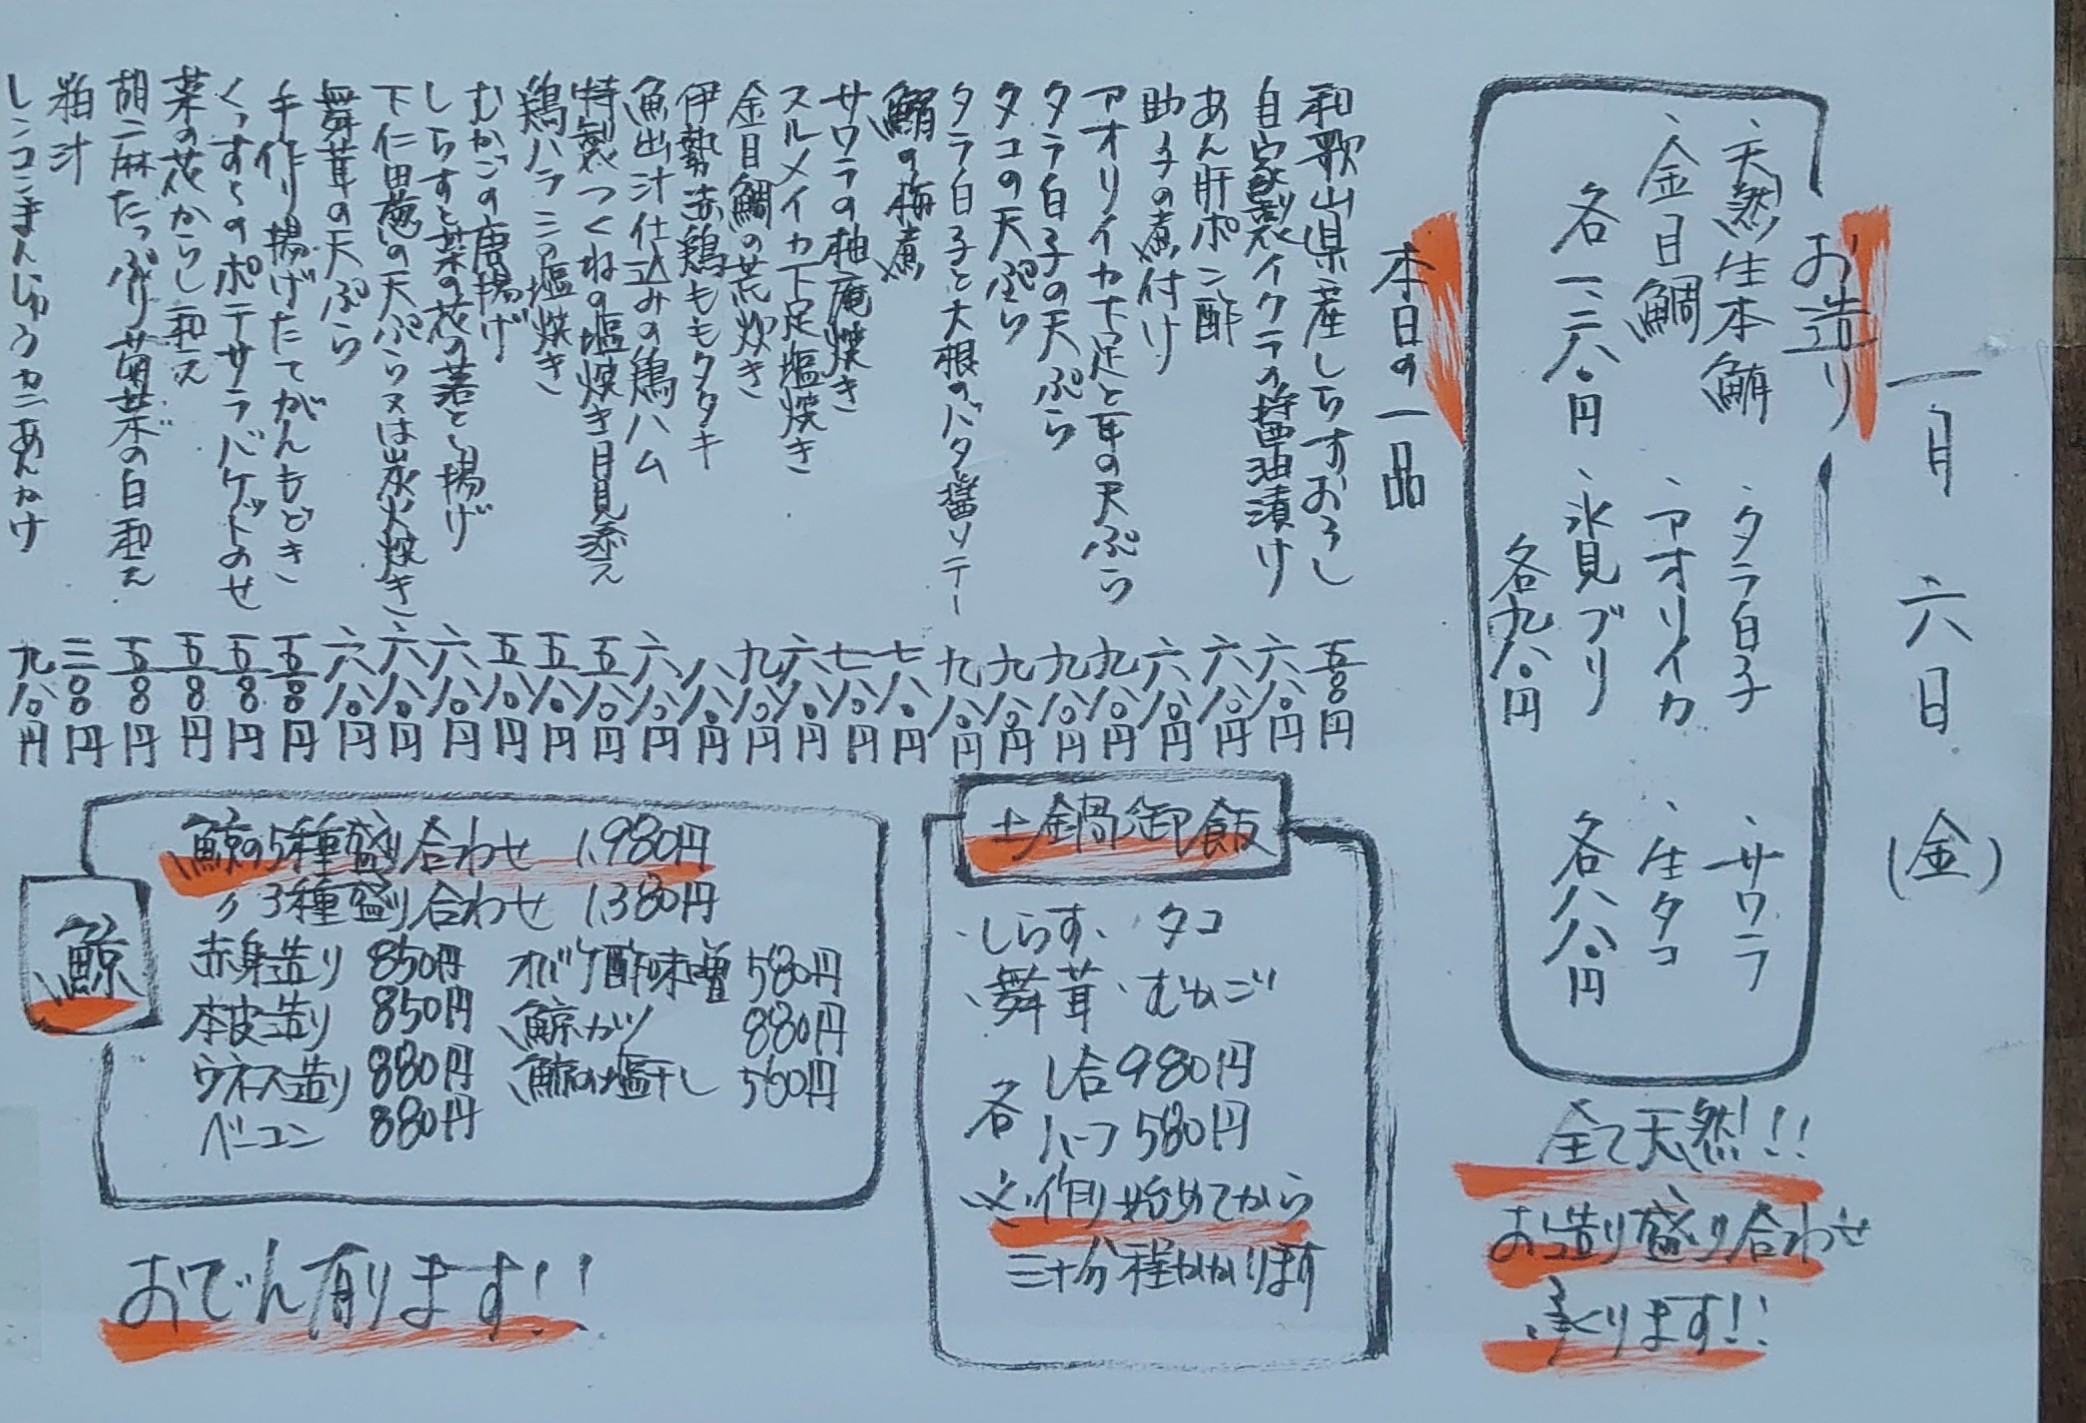 一月六日(金)
お造り
、天然生本鮪
、金目鯛
各一二八〇円
、タラ白子
、アオリイカ
、氷見ブリ
各九八〇円
、サワラ
、生タコ
各八八〇円
全て天然!!
お造り盛り合わせ
承ります!!
本日の一品
和歌山県産しらすおろし 五八〇円
自家製イクラの醤油漬け 六八〇円
あん肝ポン酢 六八〇円
助子の煮付け 六八〇円
アオリイカ下足と耳の天ぷら 九八〇円
タラ白子の天ぷら 九八〇円
タコの天ぷら 九八〇円
タラ白子と大根のバタ醤ソテー 九八〇円
鮪の梅煮 七八〇円
サワラの柚庵焼き 七八〇円
スルメイカ下足塩焼き 六八〇円
金目鯛の荒炊き 九八〇円
伊勢赤鶏ももタタキ 八八〇円
魚出汁仕込みの鶏ハム 六八〇円
特製つくねの塩焼き月見添え 五八〇円
鶏ハラミの塩焼き 五八〇円
むかごの唐揚げ 五八〇円
しらすと菜の花の落とし揚げ 六八〇円
下仁田葱の天ぷら又は炭火焼き 六八〇円
舞茸の天ぷら 六八〇円
手作り揚げたてがんもどき 五八〇円
くっすくのポテサラバケットのせ 五八〇円
菜の花からし和え 五八〇円
胡麻たっぷり菊菜の白和え 五八〇円
粕汁 三八〇円
レンコンまんじゅうカニあんかけ 九八〇円
土鍋御飯
・しらす、タコ
、舞茸、むかご
各 1合980円
ハーフ580円
※作り始めてから
三十分程かかります
鯨
鯨の5種盛り合わせ 1,980円
〃3種盛り合わせ 1,380円
赤身造り 850円 オバケ酢味噌 580円
本皮造り 850円 鯨カツ 880円
ウネス造り 880円 鯨の塩干し 560円
ベーコン 880円
おでん有ります!!